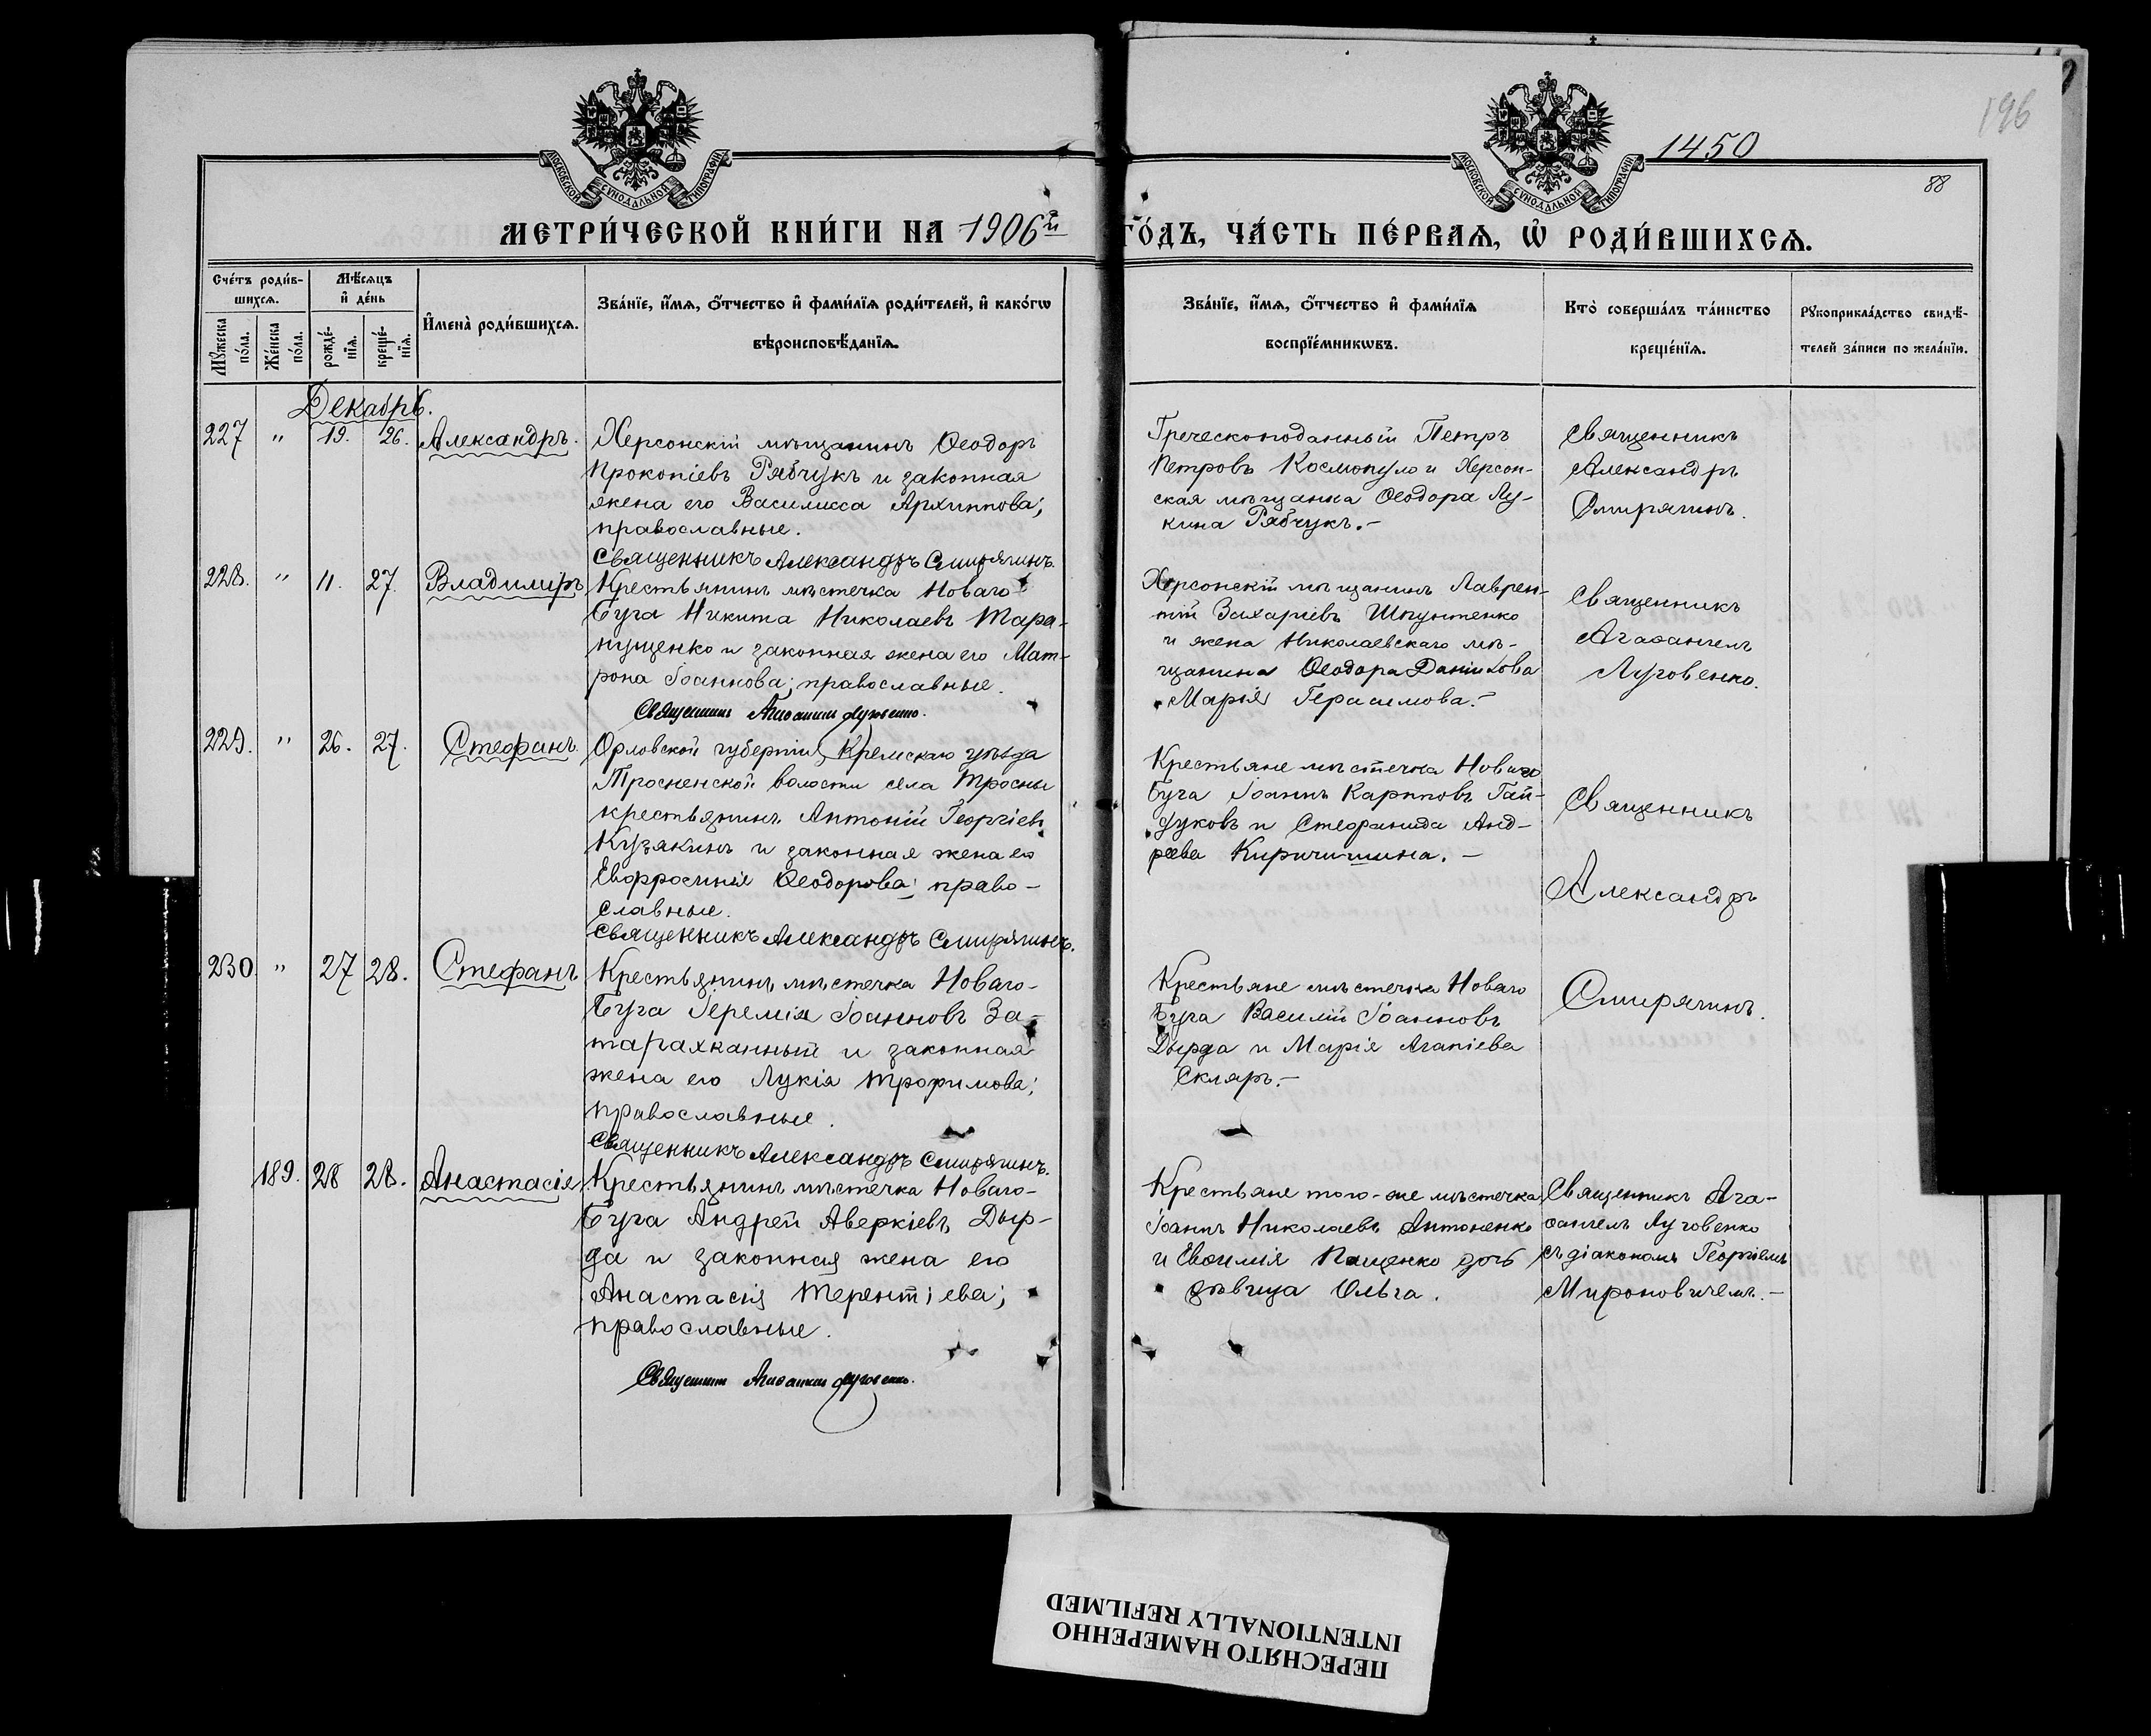 196
1450
88
МОСКОВСКОЙ СѴНОДАЛЬНОЙ ТИПОГРАФІИ
МОСКОВСКОЙ СѴНОДАЛЬНОЙ ТИПОГРАФІИ
МЕТРИ́ЧЕСКОЙ КНИ́ГИ НА 1906й ГО́ДЪ, ЧА́СТЬ ПЕ́РВАѦ, Ѡ҆ РОДИ́ВШИХСѦ.
Сче́тъ роди́в-
шихсѧ.
Мѣ́сѧцъ
и҆ де́нь
И҆мена̀ роди́вшихсѧ.
Зва́нїе, и҆́мѧ, ѻ҆́тчество и҆ фами́лїѧ роди́телей, и҆ како́гѡ
вѣроисповѣ́данїѧ.
Зва́нїе, и҆́мѧ, ѻ҆́тчество и҆ фами́лїѧ
воспрїе́мникѡвъ.
Кто̀ соверша́лъ та́инство
креще́нїѧ.
Рꙋкоприкла́дство свидѣ́-
телей за́писи по жела́нїю.
Мꙋ́жеска
по́ла.
Же́нска
по́ла.
рожде́-
нїѧ.
креще́-
нїѧ.
Декабрь.
227 " 19. 26. Александръ.
Херсонскій мѣщанинъ Ѳеодоръ
Прокопіевъ Рябчукъ и законная
жена его Василисса Архиппова;
православные.
Священникъ Александръ Смирягинъ.
Греческоподанный Петръ
Петровъ Космопуло и Херсон-
ская мѣщанка Ѳеодора Лу-
кина Рябчукъ.-
Священникъ
Александръ
Смирягинъ.
228. " 11. 27. Владимиръ
Крестьянинъ мѣстечка Новаго
Буга Никита Николаевъ Тара-
пущенко и законная жена его Мат-
рона Іоаннова; православные.
Священникъ Агаѳангелъ Луговенко.
Херсонскій мѣщанинъ Лаврен-
тій Захаріевъ Шпунтенко
и жена Николаевскаго мѣ-
щанина Ѳеодора Данилова
Марія Герасимова.-
Священникъ
Агаѳангелъ
Луговенко.
229. " 26. 27. Стефанъ
Орловской губерніи, Кремскаго уѣзда
Тросненской волости села Тросны
крестьянинъ Антоній Георгіевъ
Кузякинъ и законная жена его
Евфросинія Ѳеодорова; право-
славные.
Священникъ Александръ Смирягинъ.
Крестьяне мѣстечка Новаго
Буга Іоаннъ Карповъ Гай-
дуковъ и Стефанида Анд-
реева Киричишина.-
Священникъ
Александръ
Смирягинъ.
230. " 27 28. Стефанъ
Крестьянинъ мѣстечка Новаго-
Буга Іеремія Іоанновъ За-
тараханный и законная
жена его Лукія Трофимова;
православные.
Священникъ Александръ Смирягинъ.
Крестьяне мѣстечка Новаго
Буга Василій Іоанновъ
Дырда и Марія Агапіева
Скляръ.-
189. 28 28. Анастасія
Крестьянинъ мѣстечка Новаго-
Буга Андрей Аверкіевъ Дыр-
да и законная жена его
Анастасія Терентіева;
православные.
Священникъ Агаѳангелъ Луговенко.
Крестьяне того-же мѣстечка
Іоаннъ Николаевъ Антоненко
и Евѳимія Пащенко дочь
дѣвица Ольга.
Священникъ Ага-
ѳангелъ Луговенко
съ діакономъ Георгіемъ
Мироновичемъ.-
ПЕРЕСНЯТО НАМЕРЕННО
INTENTIONALLY REFILMED